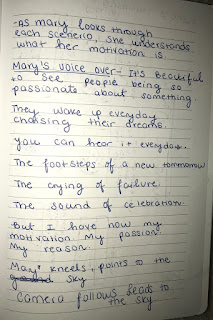 -As mary looks through
each scenerio, she understands
what her motivation is
Mary's voice over - It's beautiful
to see people being so
passionate about something
They wake up everyday
chansing their dreams.
you can hear it everyday.
The footsteps of a new tommorow
The crying of failure
The sound of celebration
but I have now my
motivation. My passion.
My reason
Mary kneels, points to the
sky
Camera follows leads to
the sky